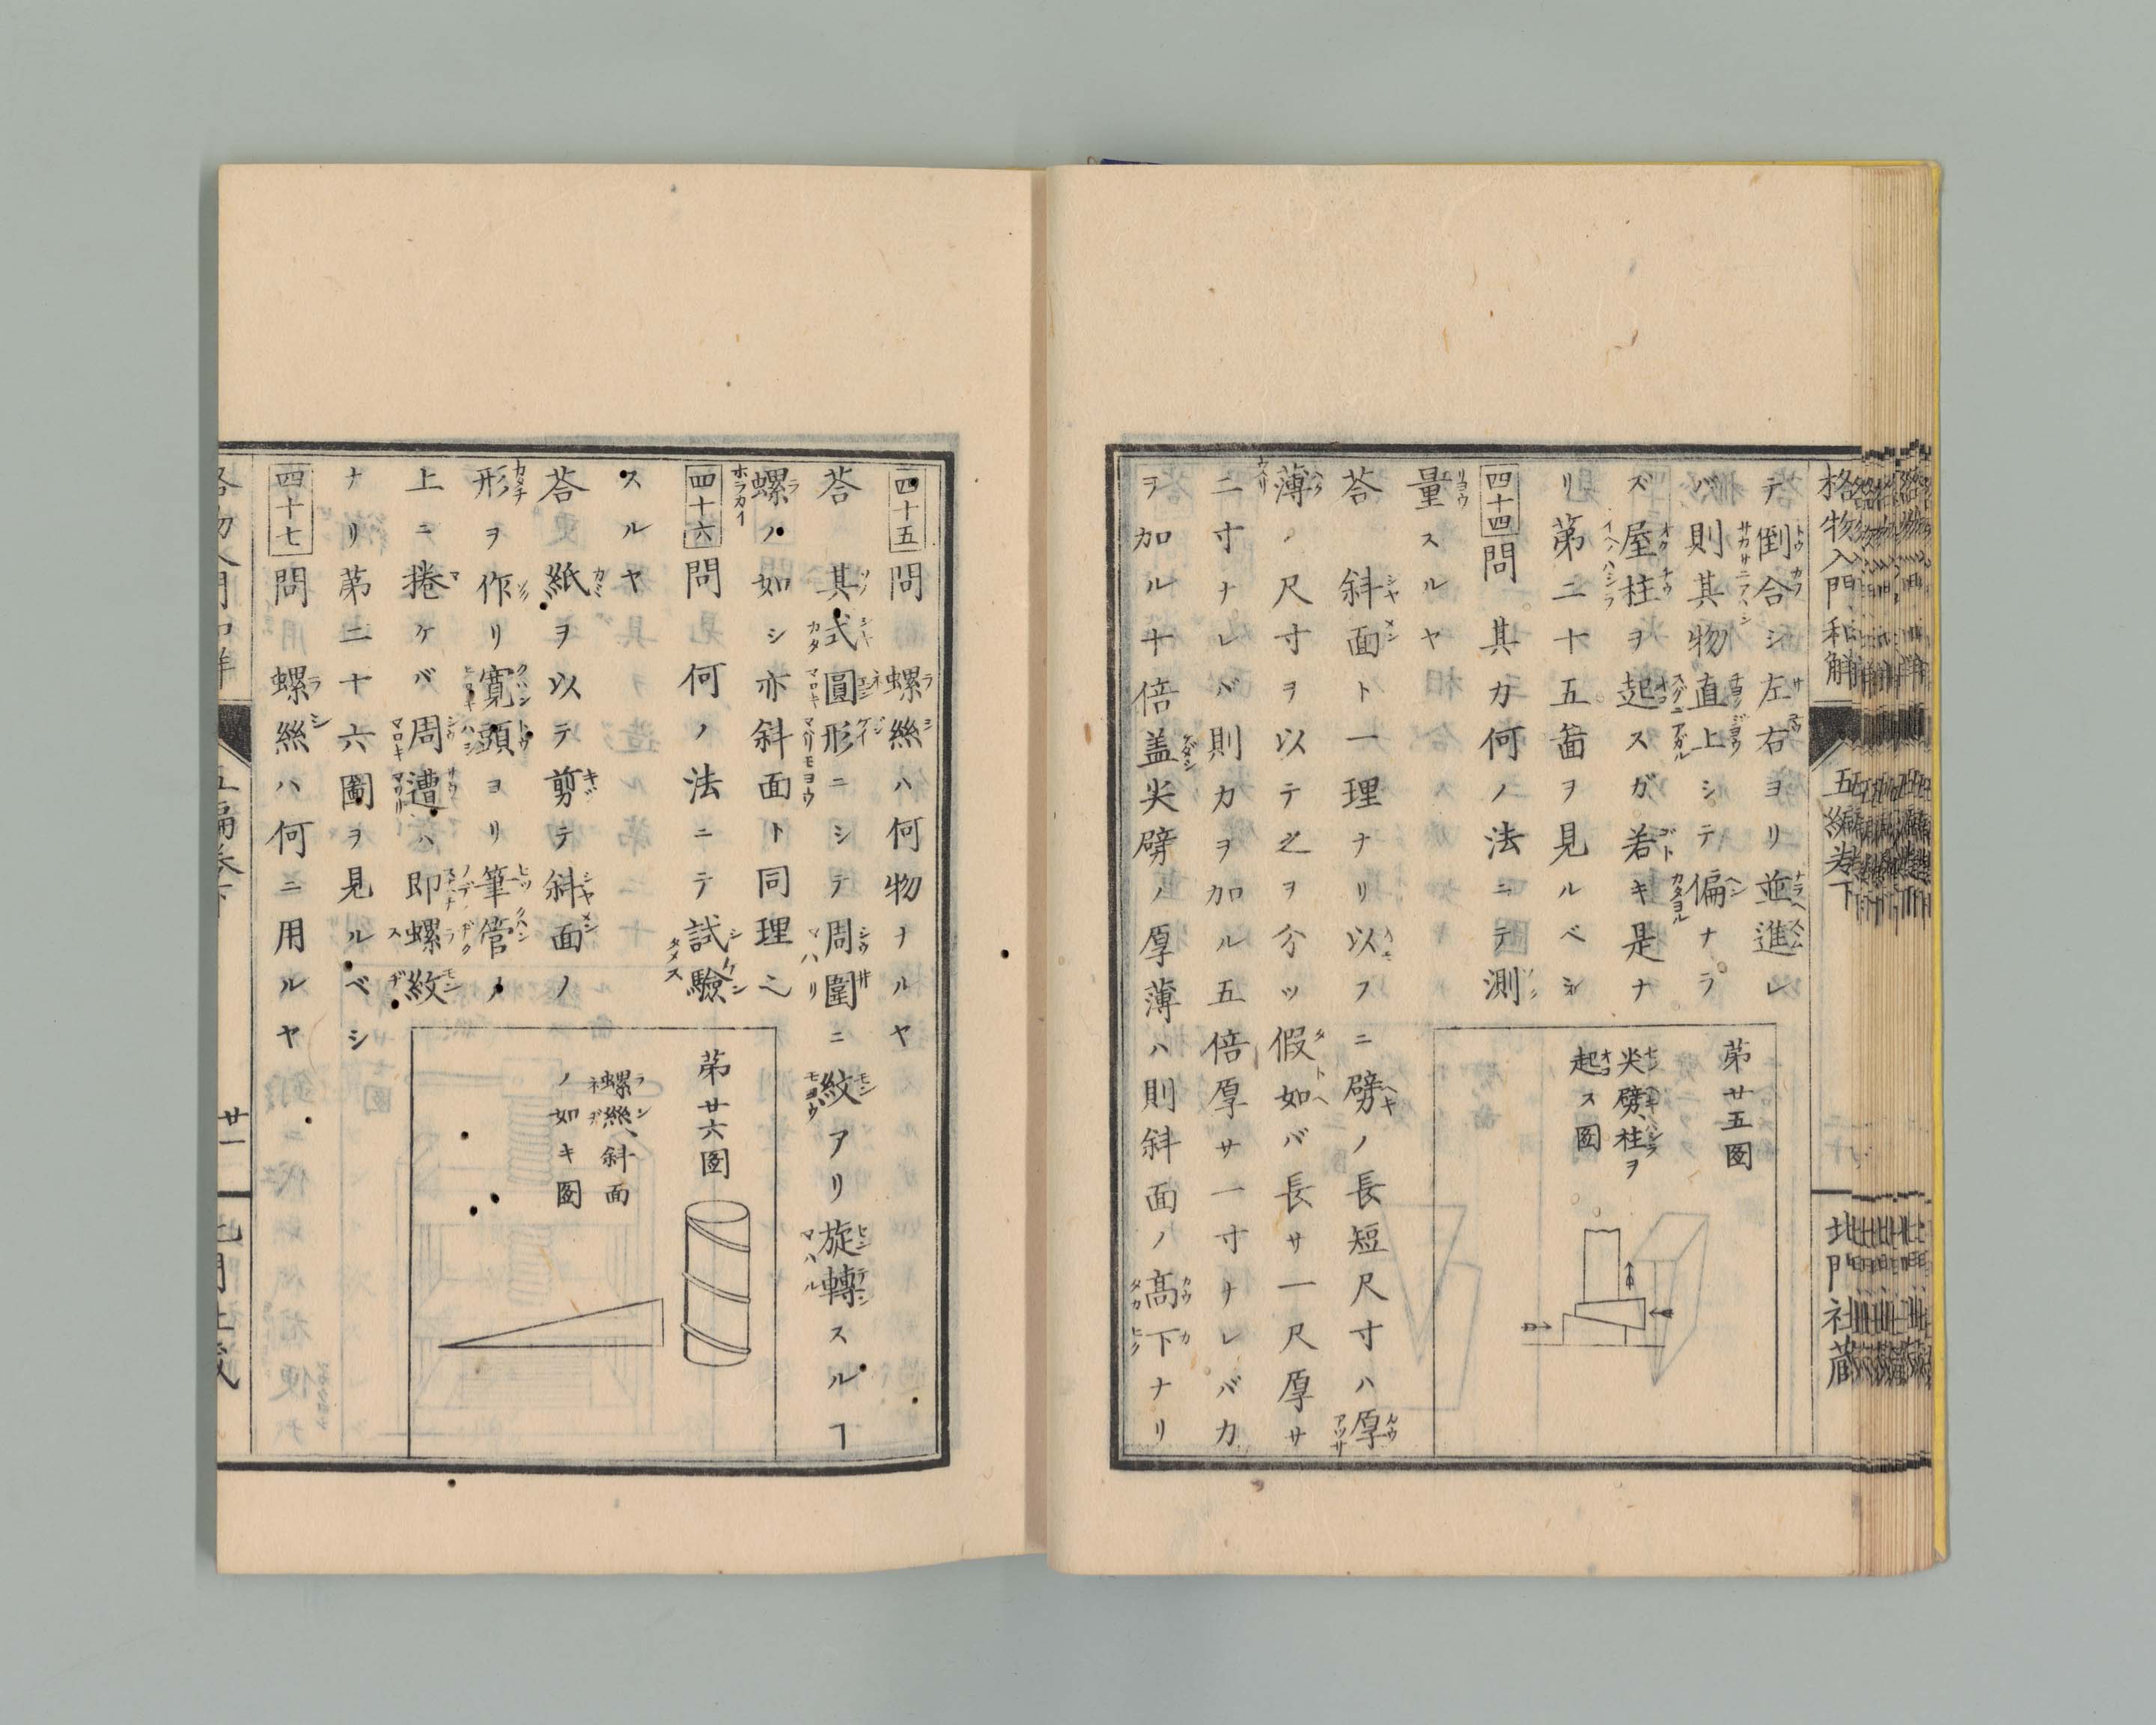 格物入門和解
五編巻下
北門社蔵
テ倒合シ左右ヨリ並進レ
バ則其物直上シテ偏ナラ
ズ屋柱ヲ起スガ若キ是ナ
リ第二十五啚ヲ見ルベシ
四十四問 其力何ノ法ニテ測
量スルヤ
荅 斜面ト一理ナリ以フニ劈ノ長短尺寸ハ厚
薄ノ尺寸ヲ以テ之ヲ分ツ假如バ長サ一尺厚サ
二寸ナレバ則力ヲ加ル五倍厚サ一寸ナレバ力
ヲ加ル十倍盖尖劈ノ厚薄ハ則斜面ノ髙下ナリ
第廿五図
尖劈柱ヲ
起ス図
四十五問 螺絲ハ何物ナルヤ
荅 其式圓形ニシテ周圍ニ紋アリ旋轉スルヿ
螺ノ如シ亦斜面ト同理之
四十六問 何ノ法ニテ試驗
スルヤ
荅 紙ヲ以テ剪テ斜面ノ
形ヲ作リ寛頭ヨリ筆管ノ
上ニ捲ケバ周遭ハ即螺紋
ナリ第二十六圖ヲ見ルベシ
四十七問 螺絲ハ何ニ用ルヤ
第廿六図
螺絲、斜面
ノ如キ図
廿一